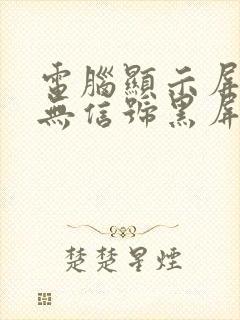 電腦顯示屏
無信號黑屏
楚楚星煙